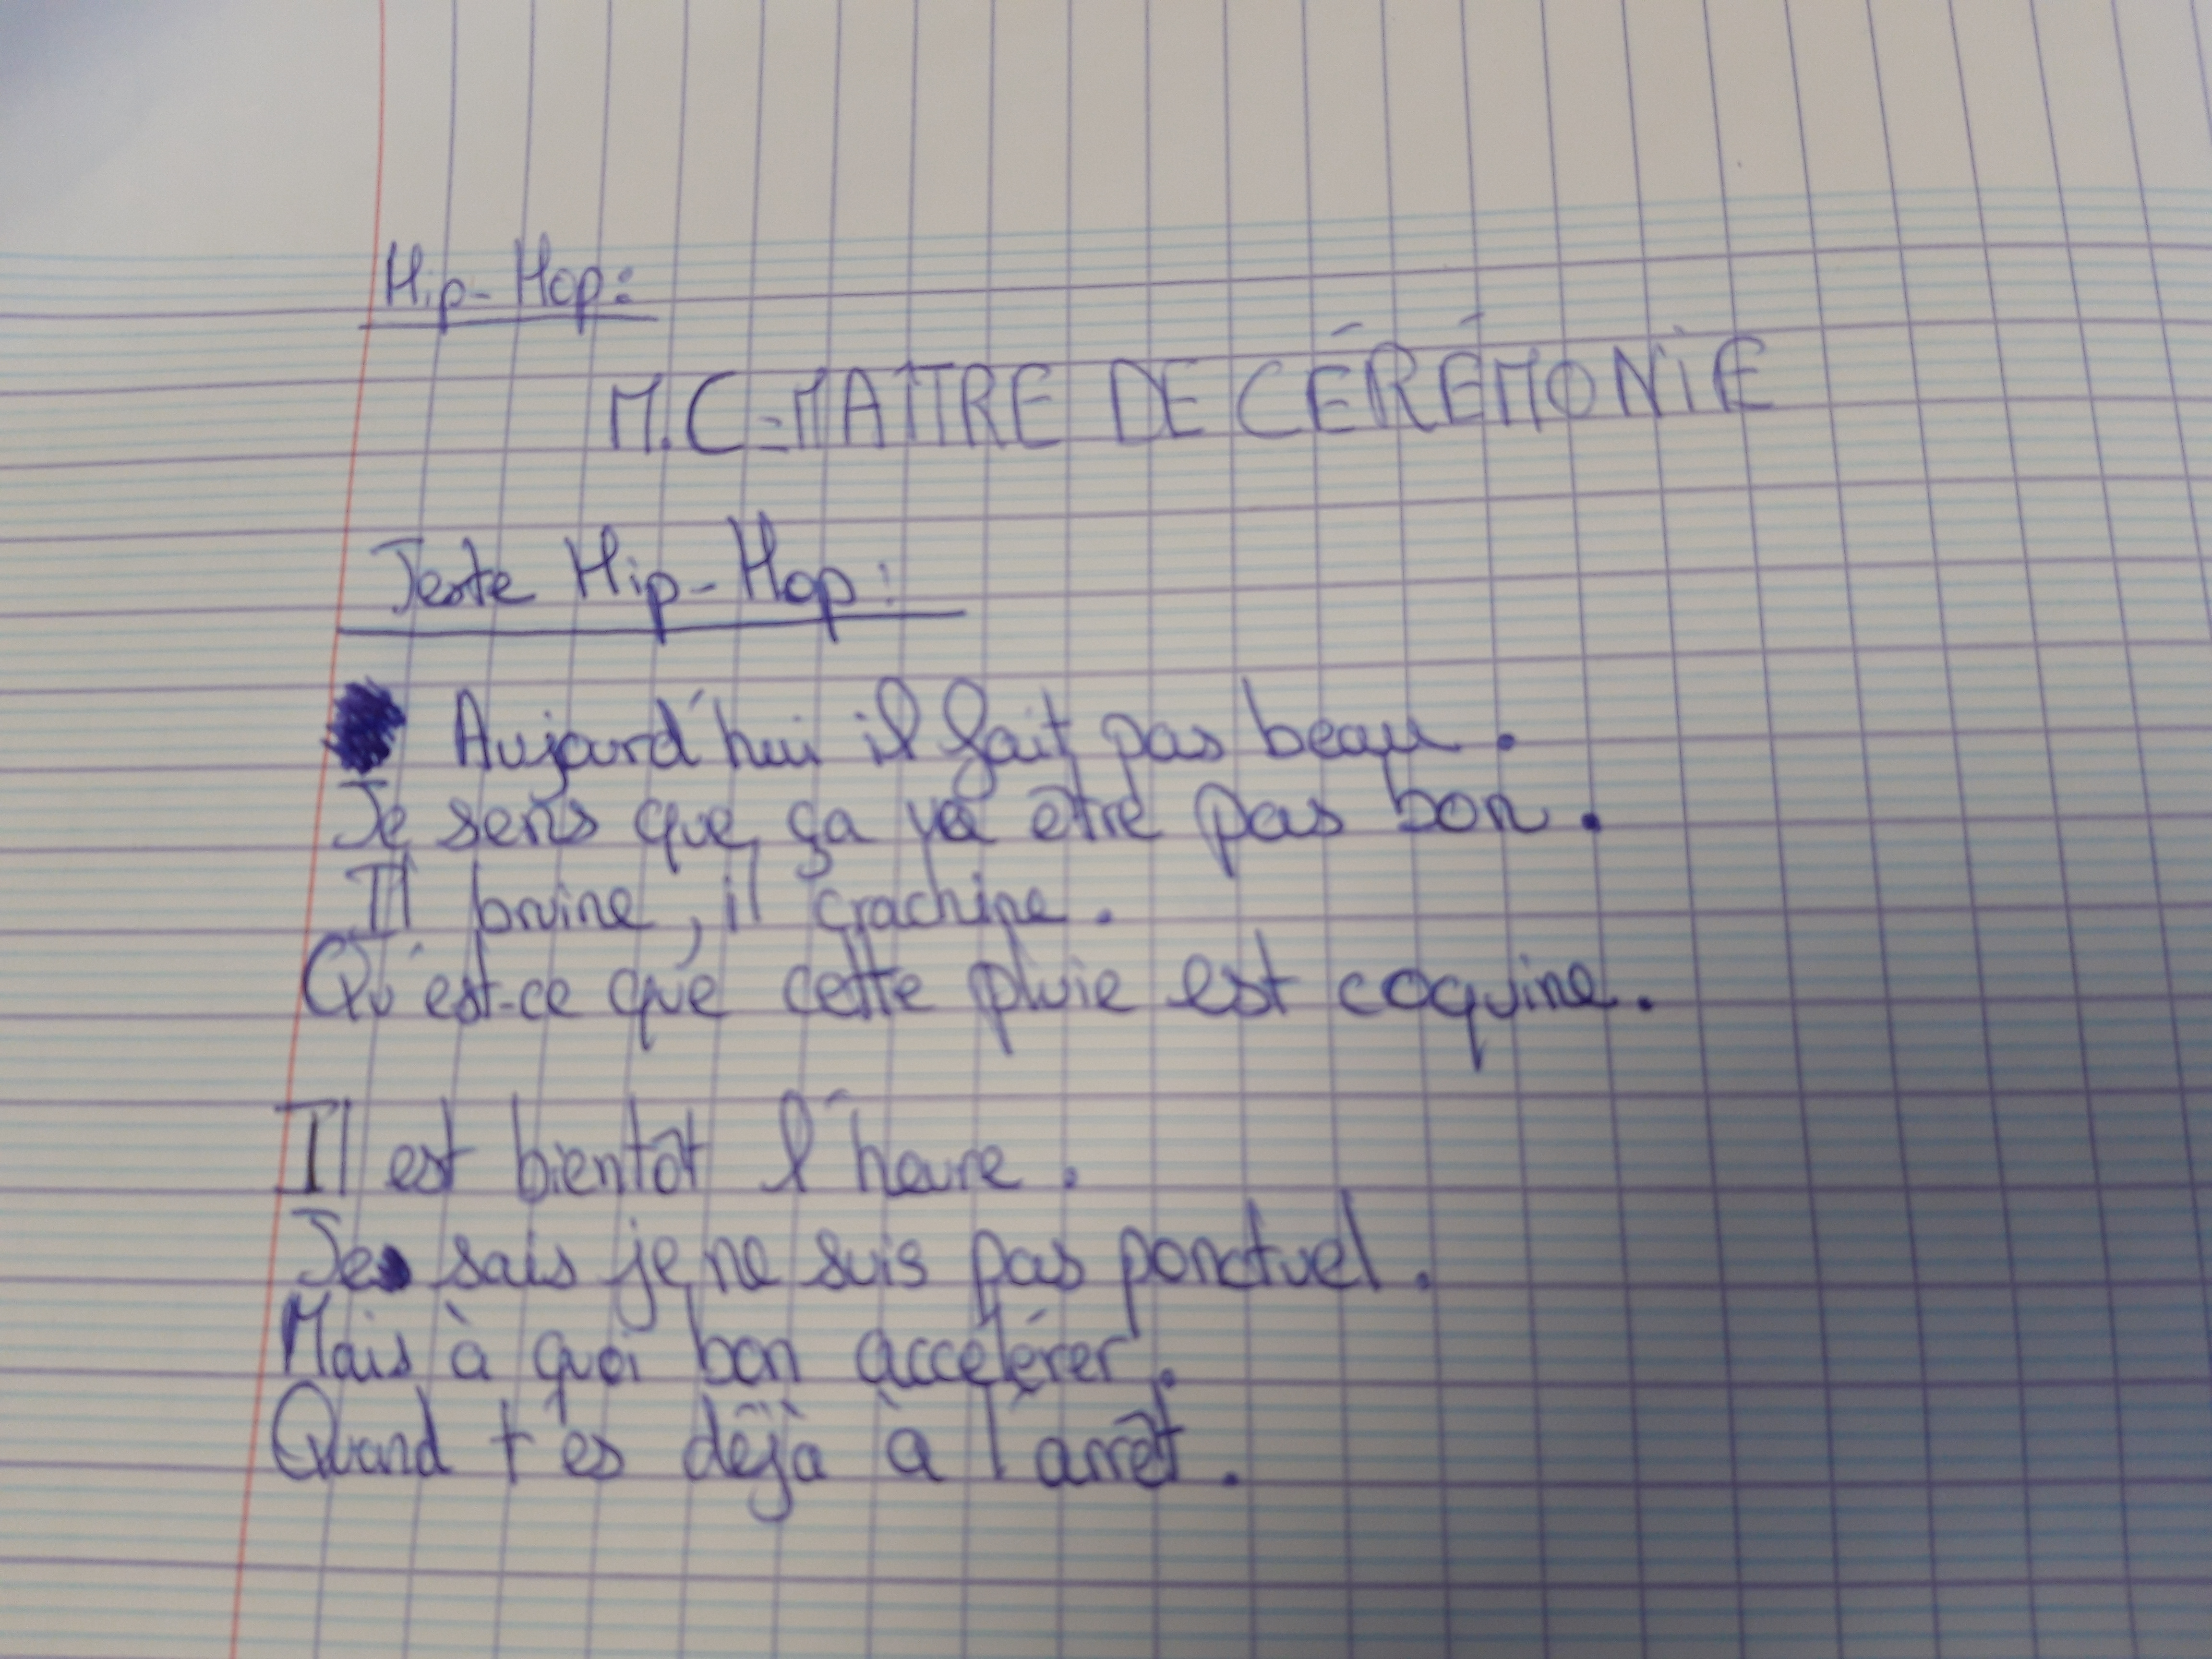 Hip-Hop:
M.C=MAITRE DE CÉRÉMONIE
Texte Hip-Hop:
Aujourd'hui il fait pas beau.
Je sens que ça va être pas bon.
Il bruine, il crachine.
Qu'est-ce que cette pluie est coquine.
Il est bientôt l'heure.
Je sais je ne suis pas ponctuel.
Mais à quoi bon accélérer.
Quand t'es déjà à l'arrêt.